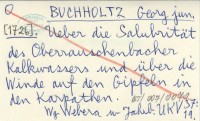 Q BUCHHOLTZ Georg jun.
[1726]. Ueber die Salubrität
des Oberrauschenbacher
Kalkwassers und über die
Winde auf den Gipfeln in
den Karpathen.
Wg Webera w Jahrb. UKV 37.
19.